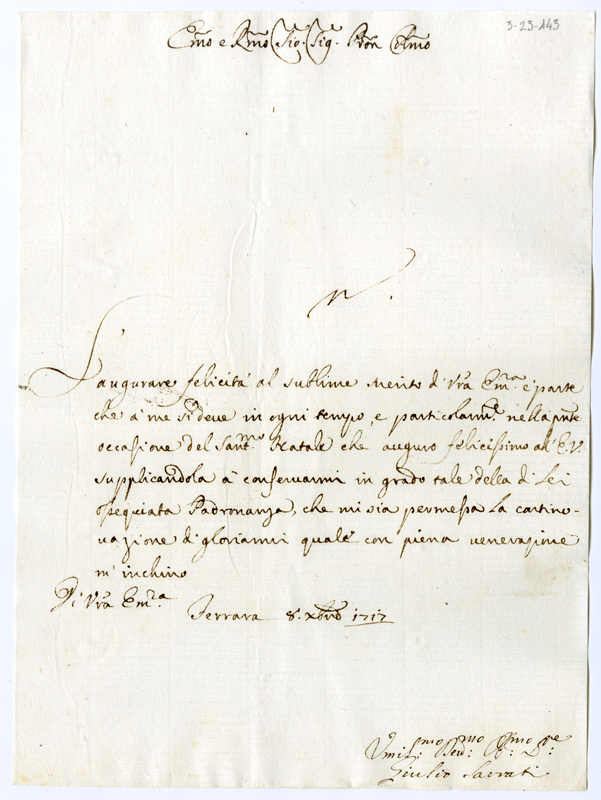 3-23-143
Emo e Rmo Sig. Sig. Pron Cmo
L'augurare felicità al sublime merito di Vra Emra è parte
che à me si deve in ogni tempo, e particolarmte nella pnte
occasione del Santmo Natale che auguro felicissimo all' E.V.
supplicandola à conservarmi in grado tale della di Lei
ossequiata Padronanza, che mi sia permessa la contino-
vazione di gloriarmi quale con piena venerazione
m' inchino
Di Vra Emra
Ferrara 8. Xbre 1717
Umilmo Devmo Obmo
Giulio Sacrati